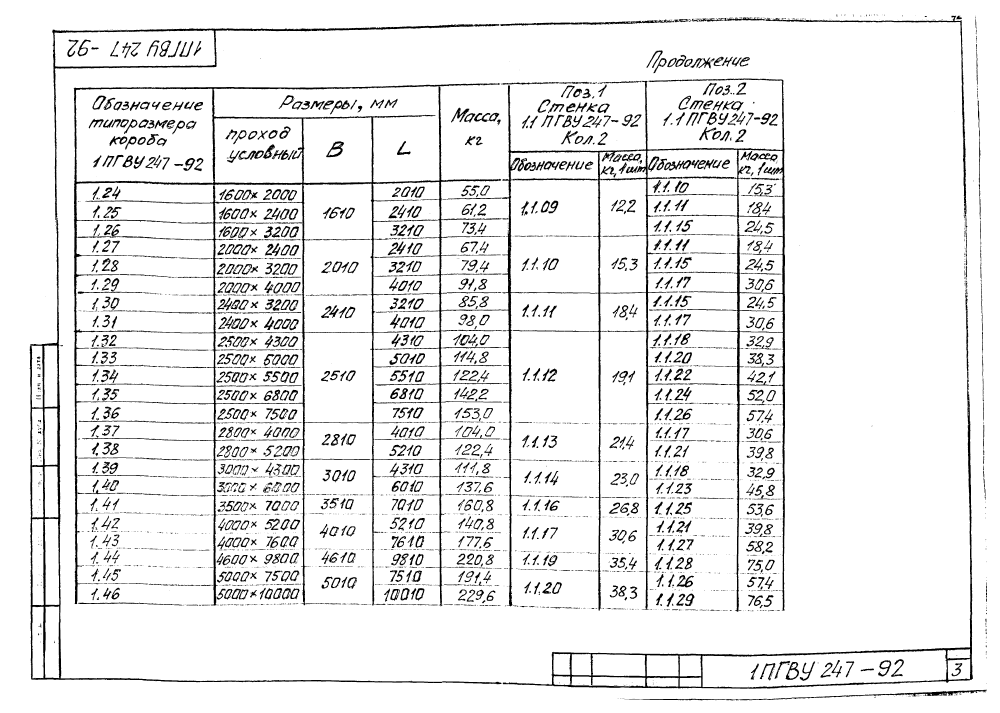 1ПГВУ 247 -92
Продолжение
Обозначение типоразмера короба 1ПГВУ 247-92 | Размеры, мм | Масса, кг | Поз.1 Стенка 1.1 ПГВУ 247-92 Кол.2 | Поз.2 Стенка 1.1 ПГВУ 247-92 Кол.2
проход условный | В | L | Обозначение | Масса, кг, 1 шт | Обозначение | Масса кг, 1 шт
1.24 | 1600×2000 | 1610 | 2010 | 55,0 | 1.1.09 | 12,2 | 1.1.10 | 15,3
1.25 | 1600×2400 | 2410 | 61,2 | 1.1.11 | 18,4
1.26 | 1600×3200 | 3210 | 73,4 | 1.1.15 | 24,5
1.27 | 2000×2400 | 2010 | 2410 | 67,4 | 1.1.10 | 15,3 | 1.1.11 | 18,4
1.28 | 2000×3200 | 3210 | 79,4 | 1.1.15 | 24,5
1.29 | 2000×4000 | 4010 | 91,8 | 1.1.17 | 30,6
1.30 | 2400×3200 | 2410 | 3210 | 85,8 | 1.1.11 | 18,4 | 1.1.15 | 24,5
1.31 | 2400×4000 | 4010 | 98,0 | 1.1.17 | 30,6
1.32 | 2500×4300 | 2510 | 4310 | 104,0 | 1.1.12 | 19,1 | 1.1.18 | 32,9
1.33 | 2500×5000 | 5010 | 114,8 | 1.1.20 | 38,3
1.34 | 2500×5500 | 5510 | 122,4 | 1.1.22 | 42,1
1.35 | 2500×6800 | 6810 | 142,2 | 1.1.24 | 52,0
1.36 | 2500×7500 | 7510 | 153,0 | 1.1.26 | 57,4
1.37 | 2800×4000 | 2810 | 4010 | 104,0 | 1.1.13 | 21,4 | 1.1.17 | 30,6
1.38 | 2800×5200 | 5210 | 122,4 | 1.1.21 | 39,8
1.39 | 3000×4300 | 3010 | 4310 | 111,8 | 1.1.14 | 23,0 | 1.1.18 | 32,9
1.40 | 3000×6000 | 6010 | 137,6 | 1.1.23 | 45,8
1.41 | 3500×7000 | 3510 | 7010 | 160,8 | 1.1.16 | 26,8 | 1.1.25 | 53,6
1.42 | 4000×5200 | 4010 | 5210 | 140,8 | 1.1.17 | 30,6 | 1.1.21 | 39,8
1.43 | 4000×7600 | 7610 | 177,6 | 1.1.27 | 58,2
1.44 | 4600×9800 | 4610 | 9810 | 220,8 | 1.1.19 | 35,4 | 1.1.28 | 75,0
1.45 | 5000×7500 | 5010 | 7510 | 191,4 | 1.1.20 | 38,3 | 1.1.26 | 57,4
1.46 | 5000×10000 | 10010 | 229,6 | 1.1.29 | 76,5
1ПГВУ 247-92
3